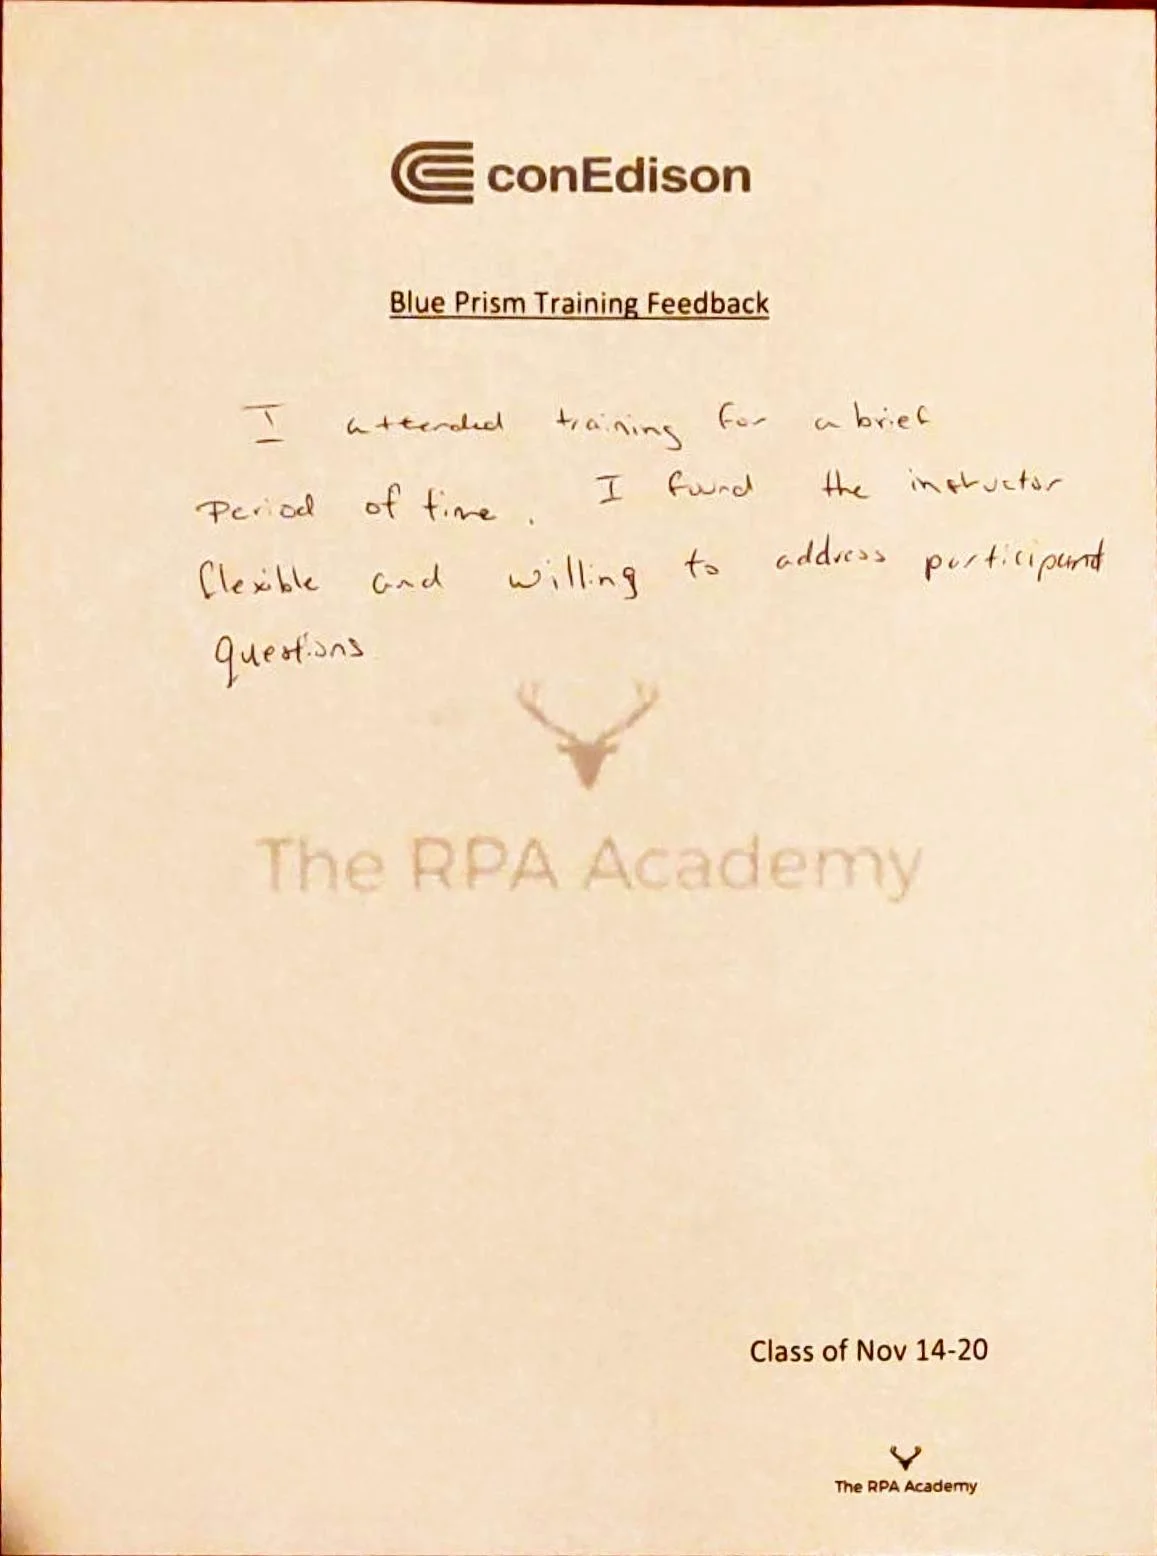 conEdison
Blue Prism Training Feedback
I attended training for a brief
Period of time. I found the instructor
flexible and willing to address participant
questions
The RPA Academy
Class of Nov 14-20
The RPA Academy